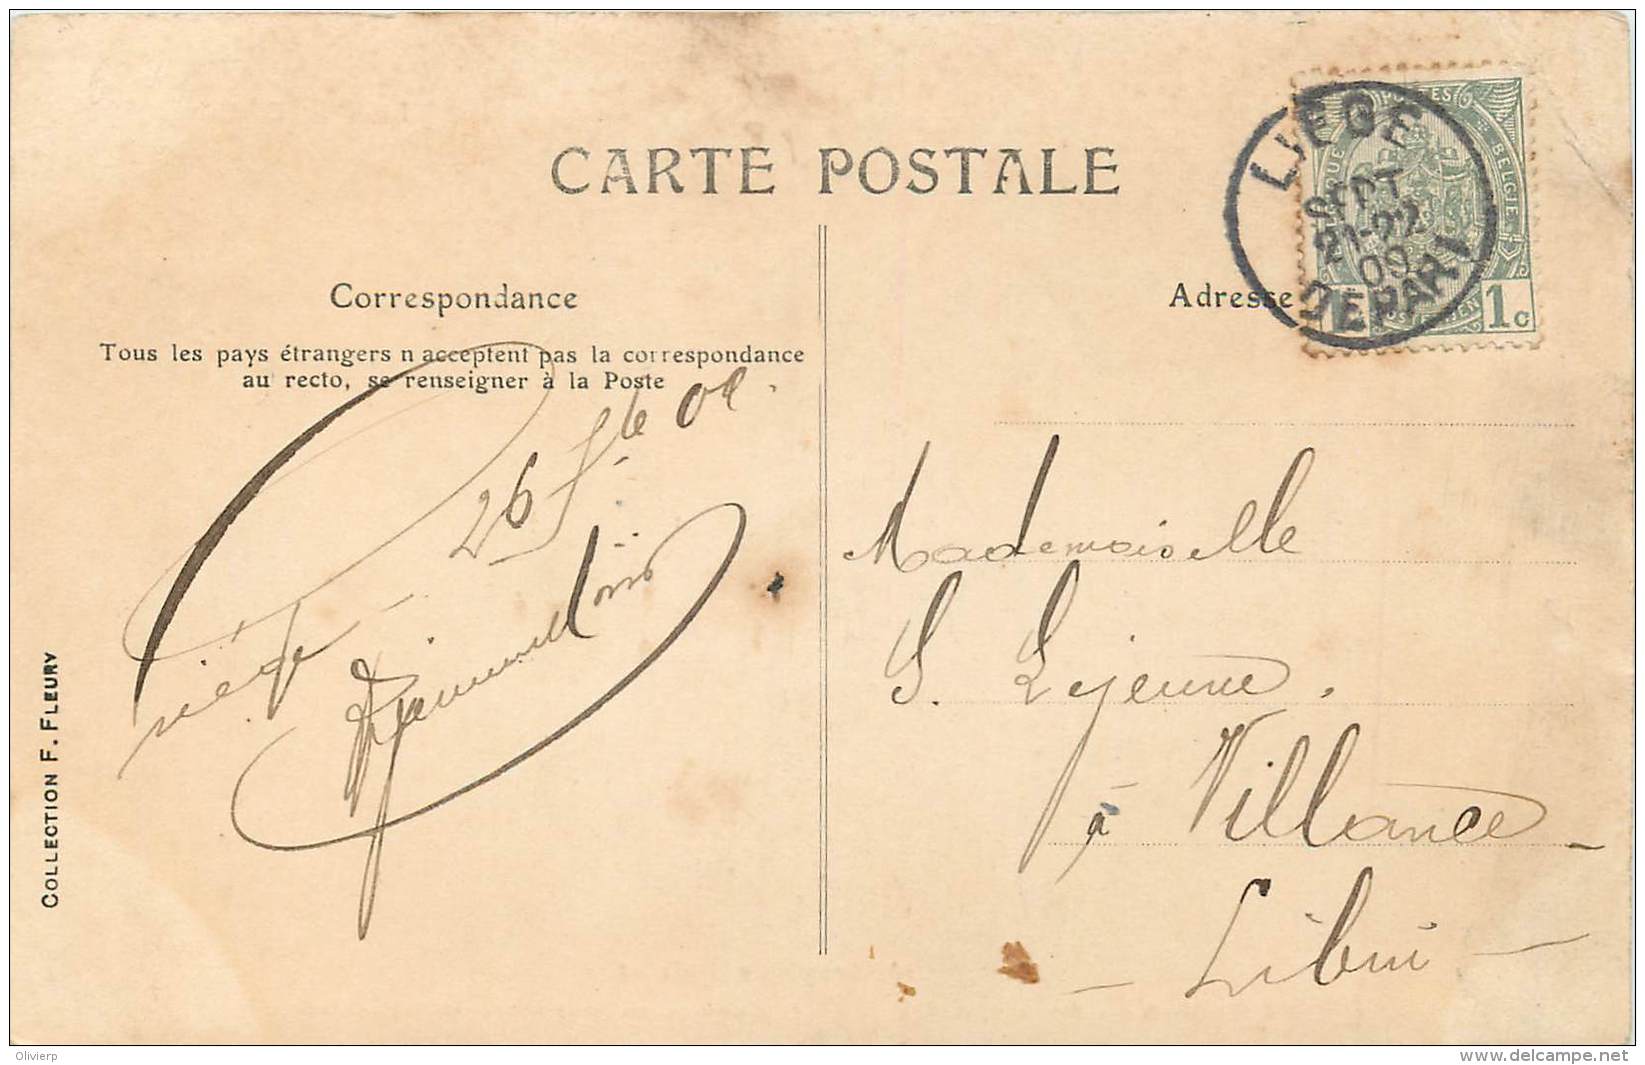 CARTE POSTALE
Correspondance
Tous les pays étrangers n acceptent pas la correspondance
au recto, se renseigner à la Poste
26
COLLECTION F. FLEURY
LIEGE
SEPT
21-22
09
DEPART
POSTES
BELGIE
1c
Adresse
Mademoiselle
S. Lejeune.
à Villance -
- Libin -
Olivierp
www.delcampe.net